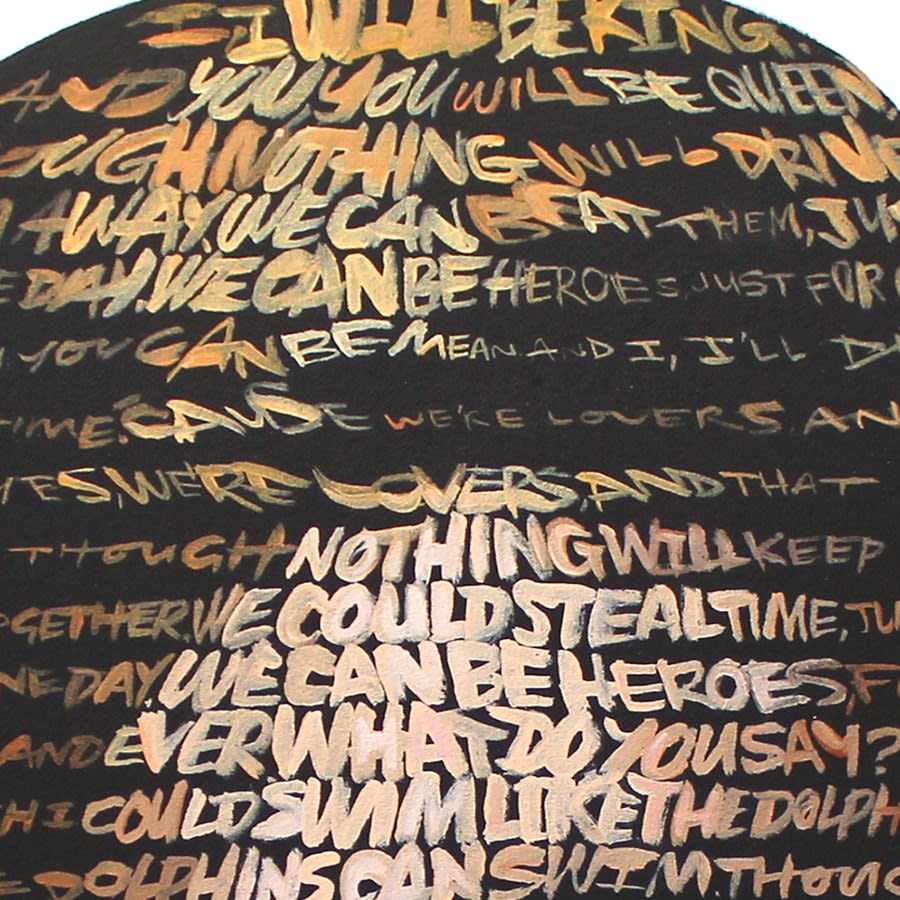 I I WILL BE KING.
AND YOU, YOU WILL BE QUEEN
OUGH NOTHING WILL DRIVE
M AWAY. WE CAN BEAT THEM, JUS
E DAY. WE CAN BE HEROES, JUST FOR O
YOU CAN BE MEAN. AND I, I'LL D
TIME. 'CAUSE WE'RE LOVERS, AN
YES, WE'RE LOVERS, AND THAT
THOUGH NOTHING WILL KEEP
OGETHER. WE COULD STEAL TIME, JU
NE DAY. WE CAN BE HEROES, F
AND EVER WHAT DO YOU SAY?
H I COULD SWIM LIKE THE DOLPH
E DOLPHINS CAN SWIM. THOUG